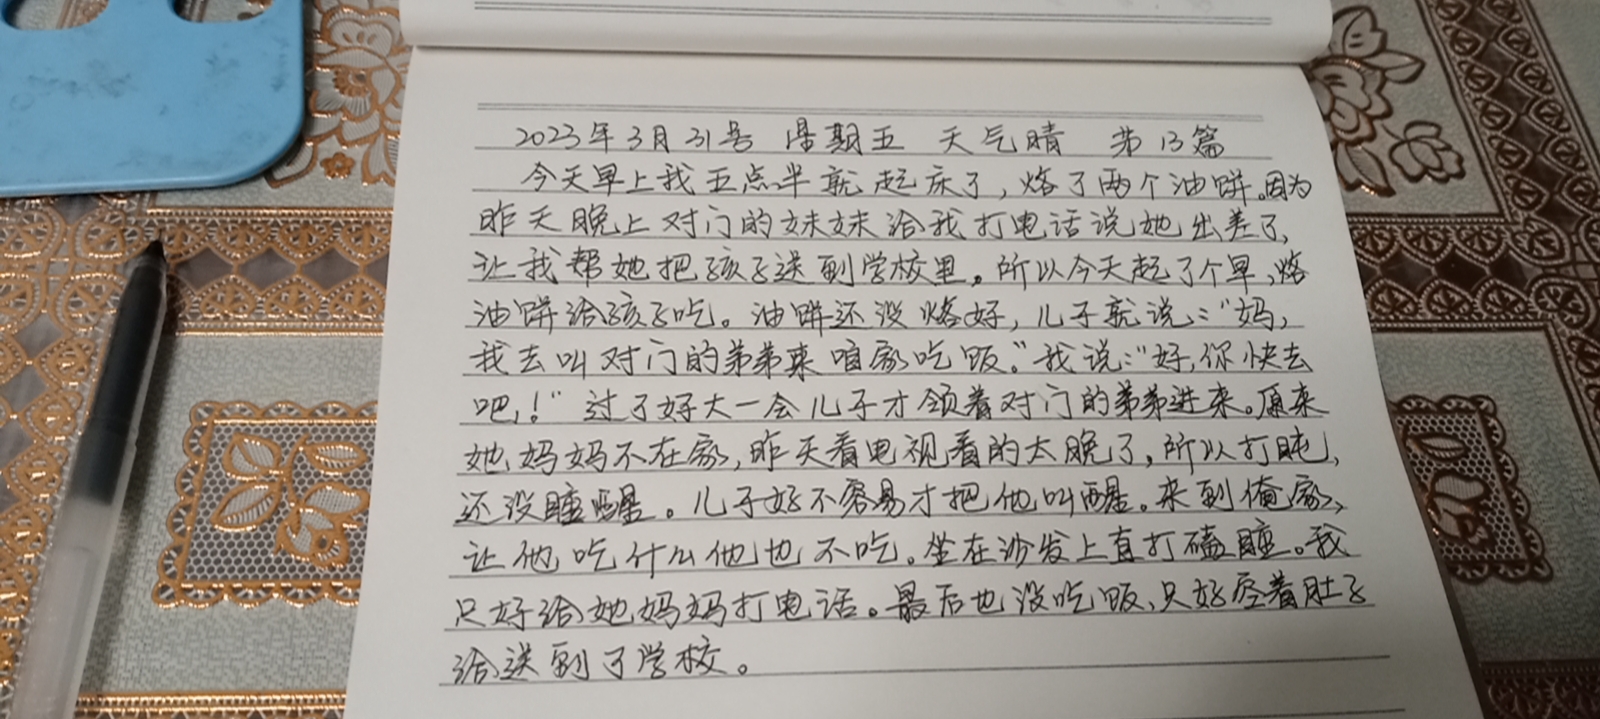 2023年3月31号 星期五 天气晴 第13篇
今天早上我五点半就起床了,烙了两个油饼。因为
昨天晚上对门的妹妹给我打电话说她出差了,
让我帮她把孩子送到学校里。所以今天起了个早,烙
油饼给孩子吃。油饼还没烙好,儿子就说:“妈,
我去叫对门的弟弟来咱家吃饭。”我说:“好,你快去
吧!” 过了好大一会儿子才领着对门的弟弟进来。原来
她妈妈不在家,昨天看电视看的太晚了,所以打盹,
还没睡醒。儿子好不容易才把他叫醒。来到俺家,
让他吃什么他也不吃。坐在沙发上直打瞌睡。我
只好给她妈妈打电话。最后也没吃饭,只好空着肚子
给送到了学校。